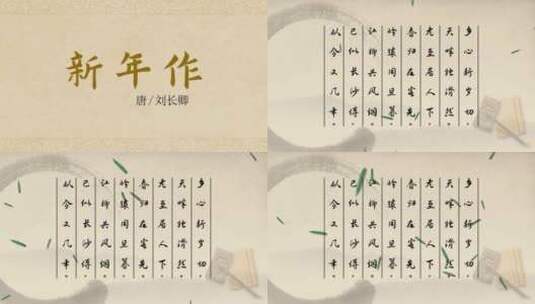 新年作
唐/刘长卿
乡心新岁切。
天畔独潸然。
老至居人下。
春归在客先。
岭猿同旦暮。
江柳共风烟。
已似长沙傅。
从今又几年。
乡心新岁切。
天畔独潸然。
老至居人下。
春归在客先。
岭猿同旦暮。
江柳共风烟。
已似长沙傅。
从今又几年。
乡心新岁切。
天畔独潸然。
老至居人下。
春归在客先。
岭猿同旦暮。
江柳共风烟。
已似长沙傅。
从今又几年。